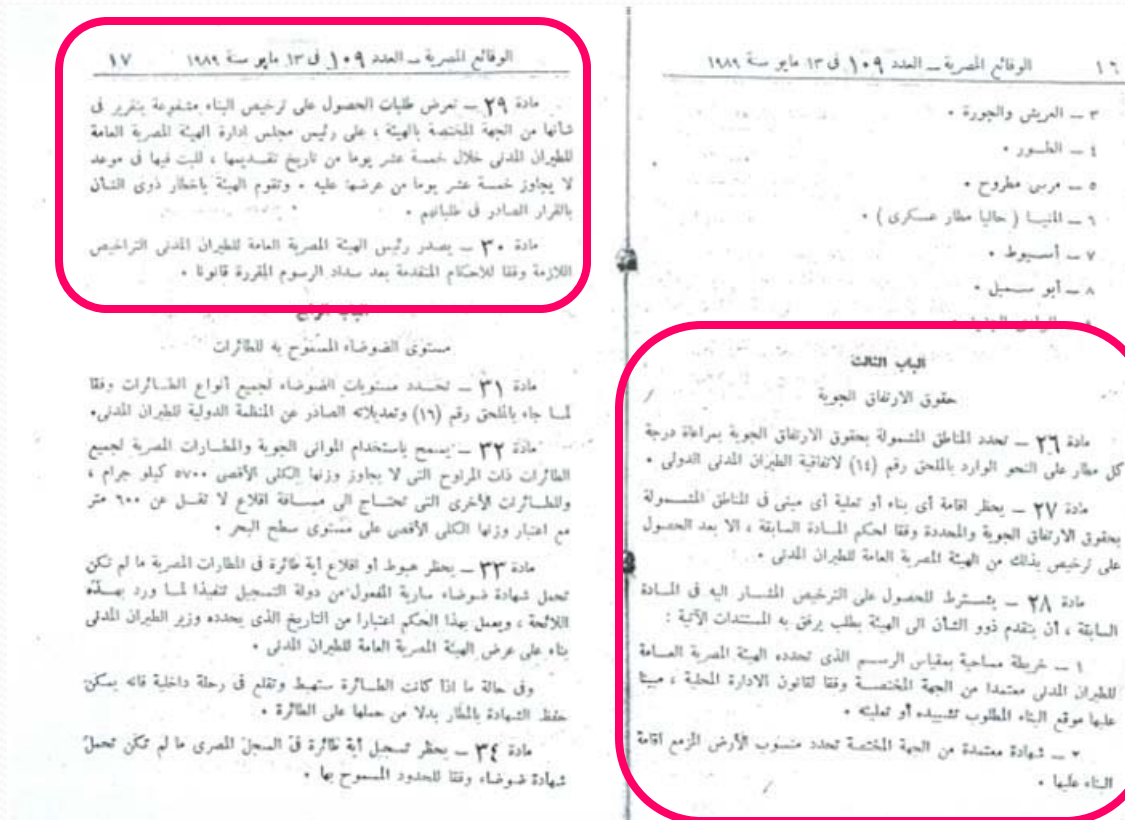 ١٦ الوقائع المصرية ــ العدد ١٠٩ فى ١٣ مايو سنة ١٩٨٩
٣ ــ العريش والجورة ٠
٤ ــ الطــور ٠
٥ ــ مرسى مطروح ٠
٦ ــ المنيــا ( حاليا مطار عسكرى ) ٠
٧ ــ أســيوط ٠
٨ ــ أبو ســمبل ٠
الباب الثالث
حقوق الارتفاق الجوية
مادة ٢٦ ــ تحدد المناطق المشمولة بحقوق الارتفاق الجوية بمراعاة درجة
كل مطار على النحو الوارد بالملحق رقم (١٤) لاتفاقية الطيران المدنى الدولى ٠
مادة ٢٧ ــ يحظر اقامة أى بناء أو تعلية أى مبنى فى المناطق المشــمولة
بحقوق الارتفاق الجوية والمحددة وفقا لحكم المــادة السابقة ، الا بعد الحصول
على ترخيص بذلك من الهيئة المصرية العامة للطيران المدنى ٠
مادة ٢٨ ــ يشــترط للحصول على الترخيص المشــار اليه فى المــادة
السابقة ، أن يتقدم ذوو الشأن الى الهيئة بطلب يرفق به المستندات الآتية :
١ ــ خريطة مساحية بمقياس الرســم الذى تحدده الهيئة المصرية العــامة
للطيران المدنى معتمدا من الجهة المختصــة وفقا لقانون الادارة المحلية ، مبينا
عليها موقع البناء المطلوب تشييده أو تعليته ٠
٢ ــ شهادة معتمدة من الجهة المختصة تحدد منسوب الأرض المزمع اقامة
البناء عليها ٠
الوقائع المصرية ــ العدد ١٠٩ فى ١٣ مايو سنة ١٩٨٩ ١٧
مادة ٢٩ ــ تعرض طلبات الحصول على ترخيص البناء مشفوعة بتقرير فى
شأنها من الجهة المختصة بالهيئة ، على رئيس مجلس ادارة الهيئة المصرية العامة
للطيران المدنى خلال خمسة عشر يوما من تاريخ تقــديمها ، للبت فيها فى موعد
لا يجاوز خمســة عشر يوما من عرضها عليه ٠ وتقوم الهيئة باخطار ذوى الشــأن
بالقرار الصادر فى طلباتهم ٠
مادة ٣٠ ــ يصدر رئيس الهيئة المصرية العامة للطيران المدنى التراخيص
اللازمة وفقا للاحكام المتقدمة بعد سداد الرسوم المقررة قانونا ٠
الباب الرابع
مستوى الضوضاء المسموح به للطائرات
مادة ٣١ ــ تحــدد مستويات الضوضاء لجميع أنواع الطــائرات وفقا
لمــا جاء بالملحق رقم (١٦) وتعديلاته الصادر عن المنظمة الدولية للطيران المدنى٠
مادة ٣٢ ــ يسمح باستخدام الموانى الجوية والمطــارات المصرية لجميع
الطائرات ذات المراوح التى لا يجاوز وزنها الكلى الأقصى ٥٧٠٠ كيلو جرام ،
وللطــائرات الأخرى التى تحتــاج الى مســافة اقلاع لا تقــل عن ٦٠٠ متر
مع اعتبار وزنها الكلى الأقصى على مستوى سطح البحر ٠
مادة ٣٣ ــ يحظر هبوط أو اقلاع أية طائرة فى المطارات المصرية ما لم تكن
تحمل شهادة ضوضاء سارية المفعول من دولة التسجيل تنفيذا لمــا ورد بهــذه
اللائحة ، ويعمل بهذا الحكم اعتبارا من التاريخ الذى يحدده وزير الطيران المدنى
بناء على عرض الهيئة المصرية العامة للطيران المدنى ٠
وفى حالة ما اذا كانت الطــائرة ستهبط وتقلع فى رحلة داخلية فانه يمكن
حفظ الشهادة بالمطار بدلا من حملها على الطائرة ٠
مادة ٣٤ ــ يحظر تسجيل أية طائرة فى السجل المصرى ما لم تكن تحمل
شهادة ضوضاء وفقا للحدود المسموح بها ٠